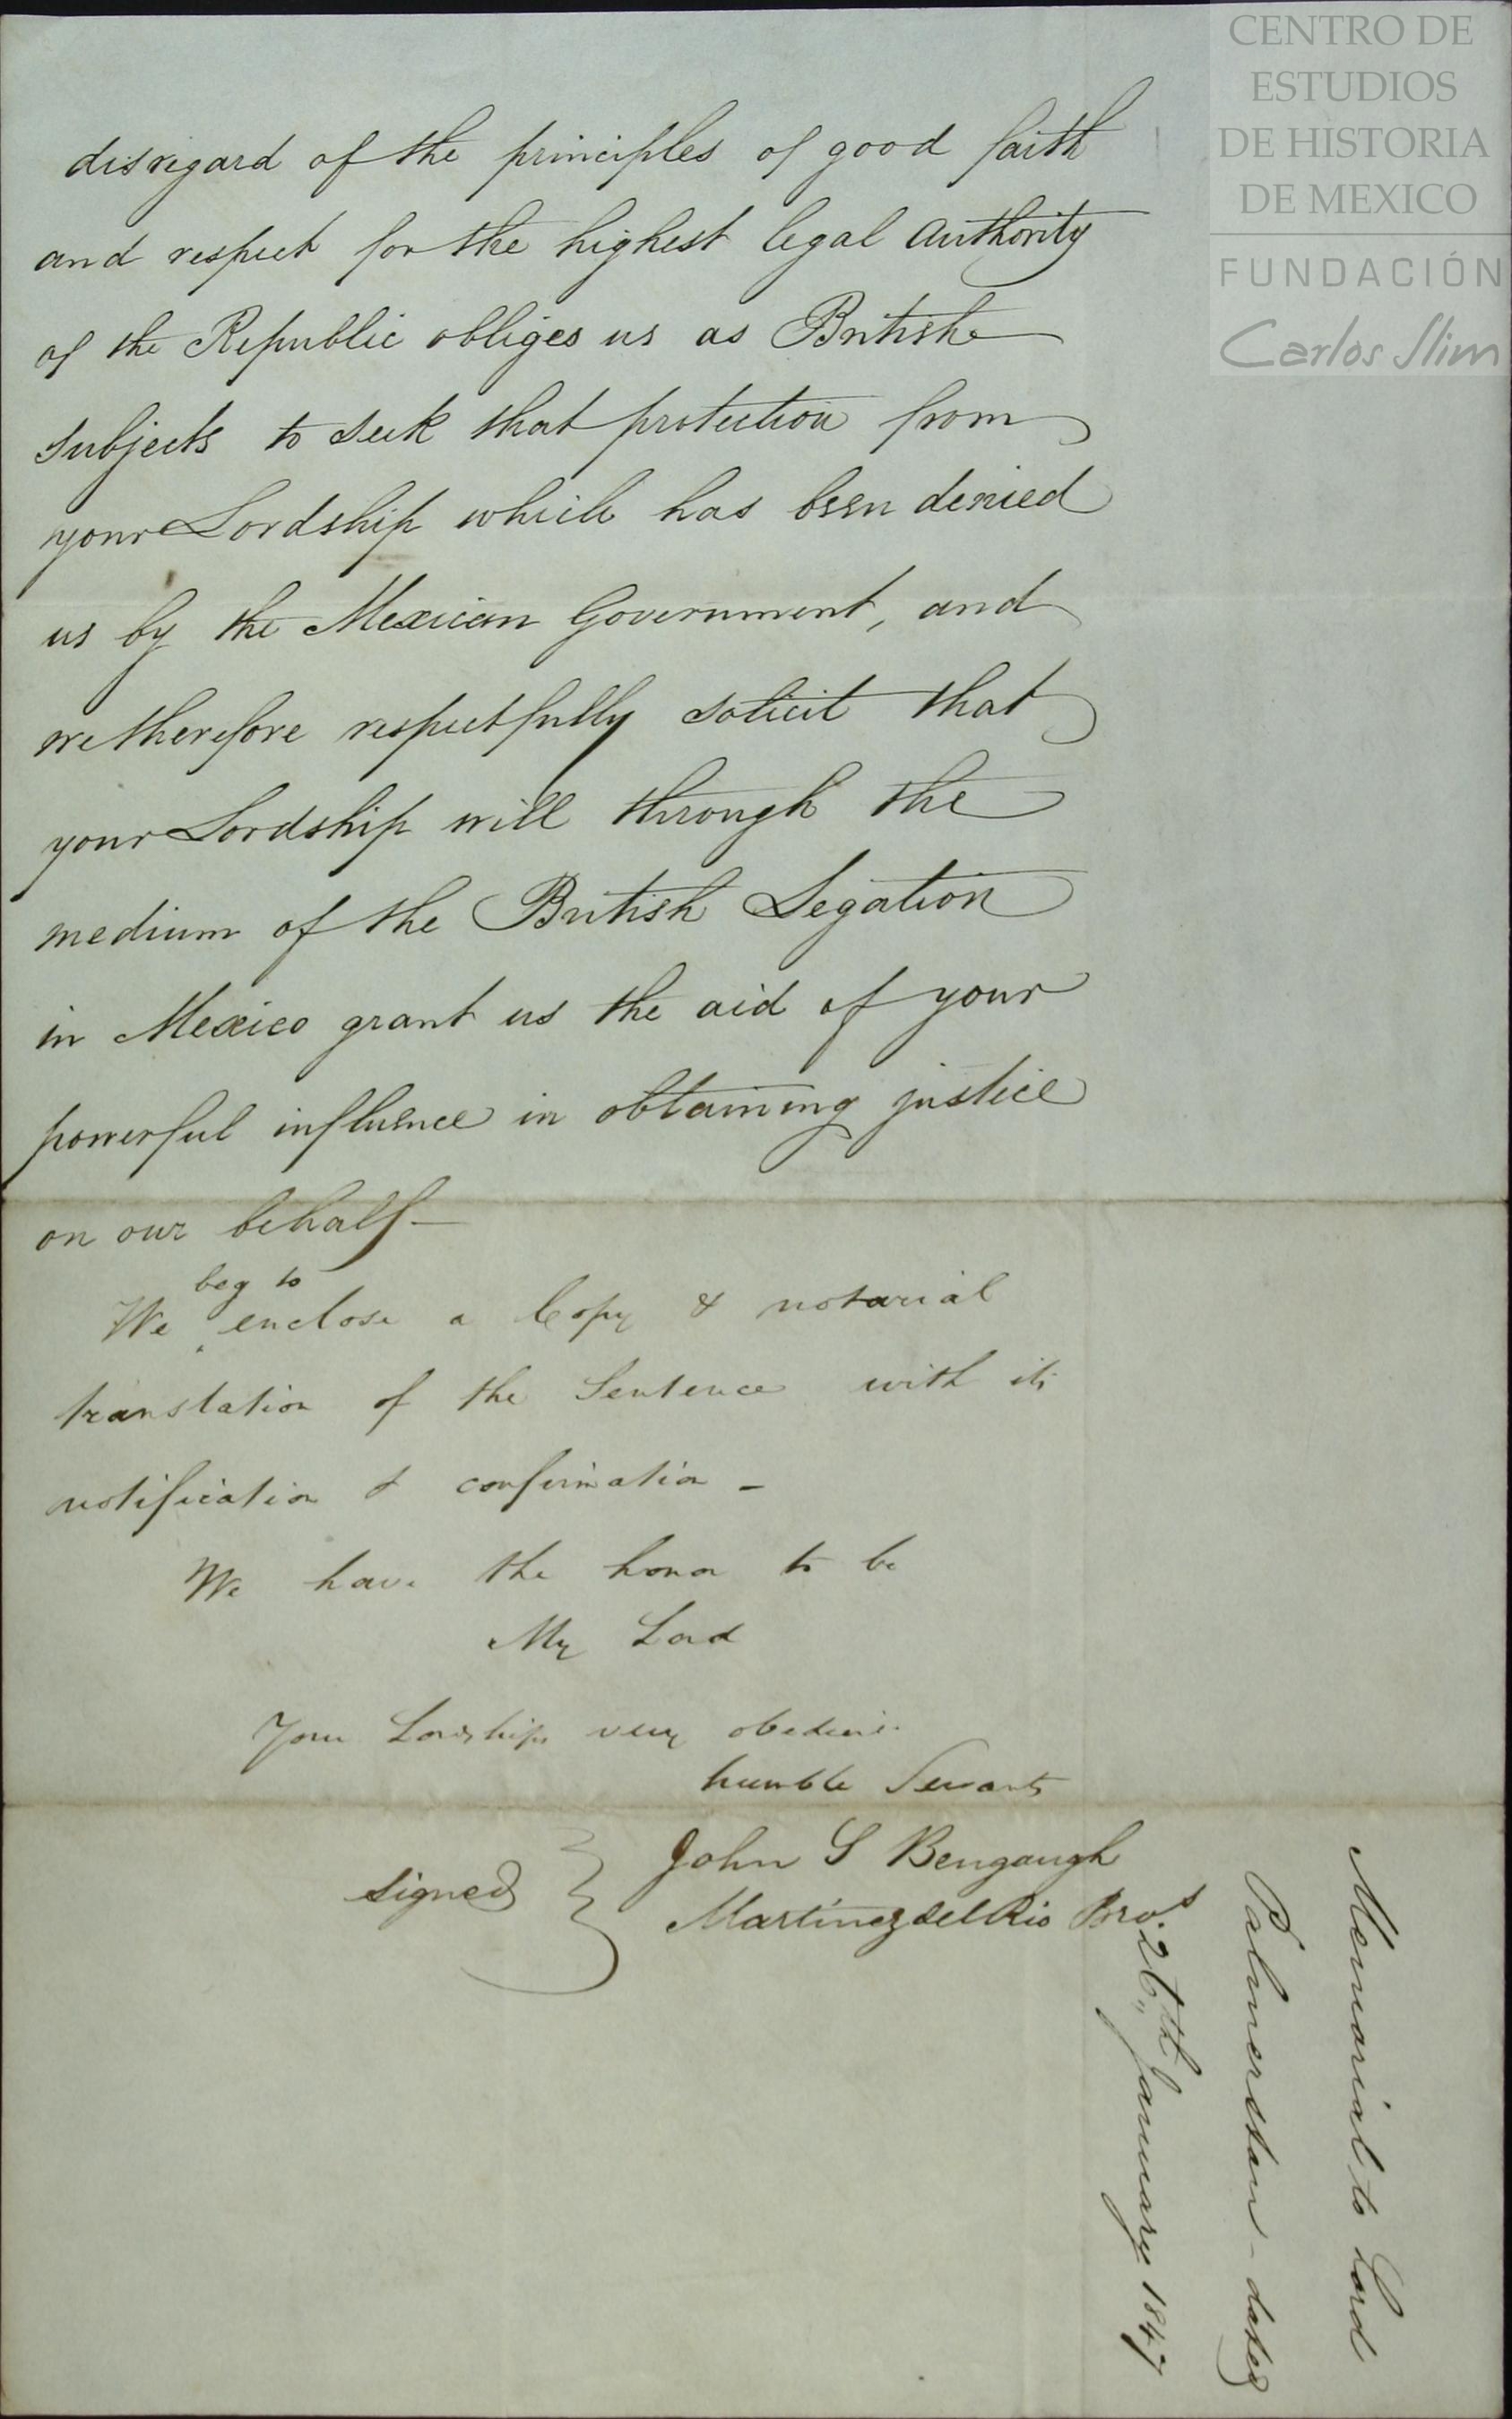 disregard of the principles of good faith
and respect for the highest legal authority
of the Republic obliges us as British
subjects to seek that protection from
your Lordship which has been denied
us by the Mexican Government, and
we therefore respectfully solicit that
your Lordship will through the
medium of the British Legation
in Mexico grant us the aid of your
powerful influence in obtaining justice
on our behalf—
beg to
We enclose a Copy & notarial
translation of the Sentence with its
notification & confirmation –
We have the honor to be
My Lord
Your Lordships very obedient
humble Servants
Signed
John S Bengough
Martinez del Rio Bros.
Memorial to Lord
Palmerston – dated
26th January 1847
CENTRO DE
ESTUDIOS
DE HISTORIA
DE MEXICO
FUNDACIÓN
Carlos Slim